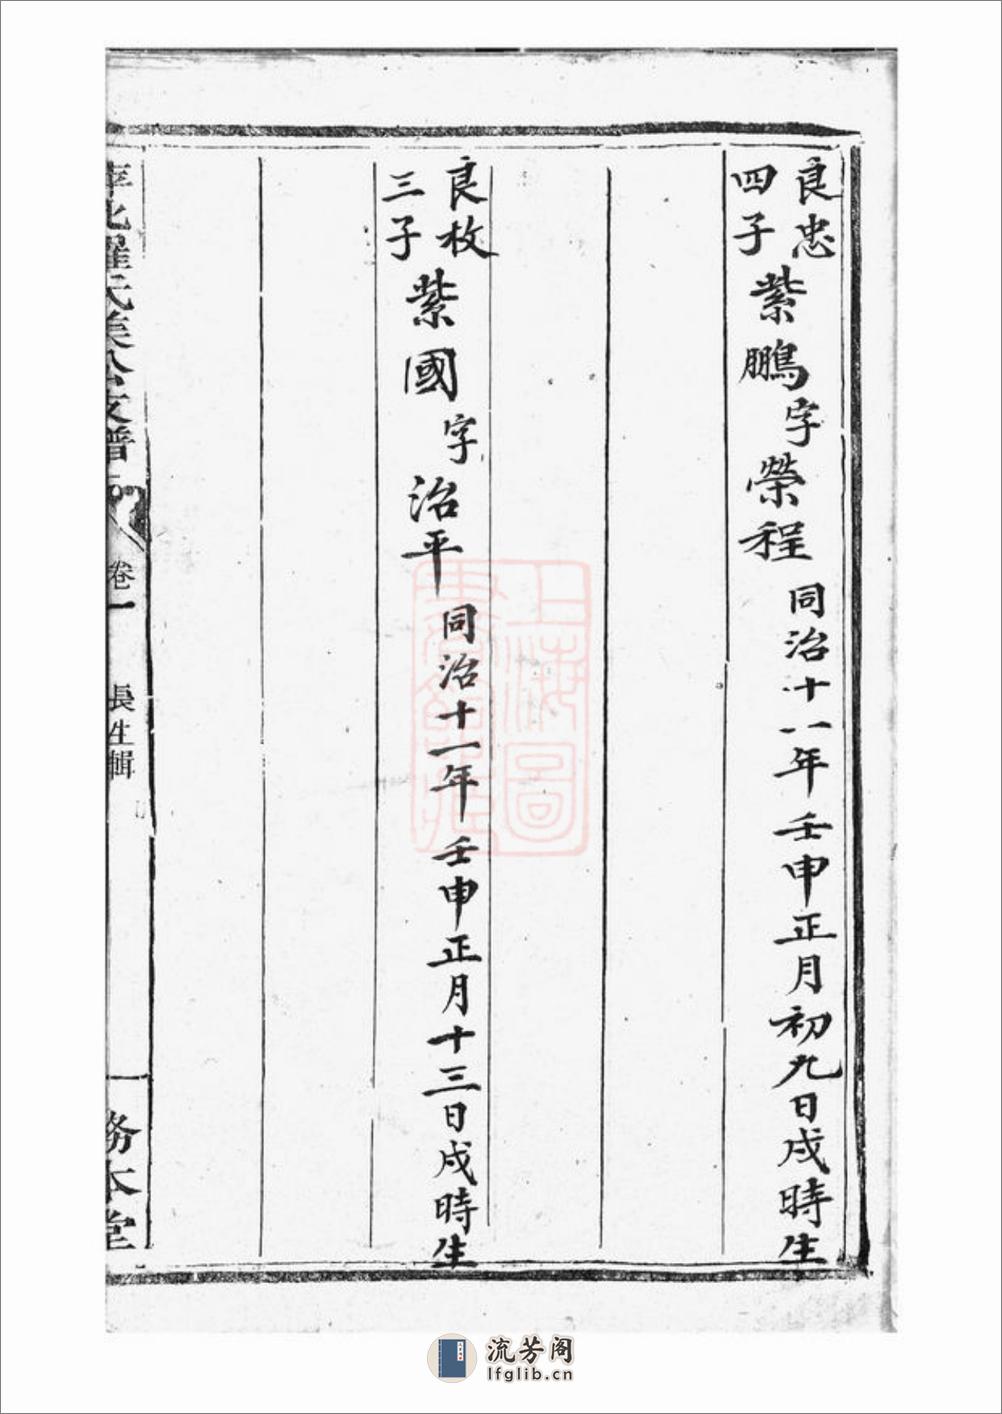 良忠
四子
紫鵬字榮程同治十一年壬申正月初九日戌時生
良枚
三子
紫國字治平同治十一年壬申正月十三日戌時生
羅氏美公支譜
卷一
長生輯
務本堂
上海圖
書館藏
流芳阁
lfglib.cn